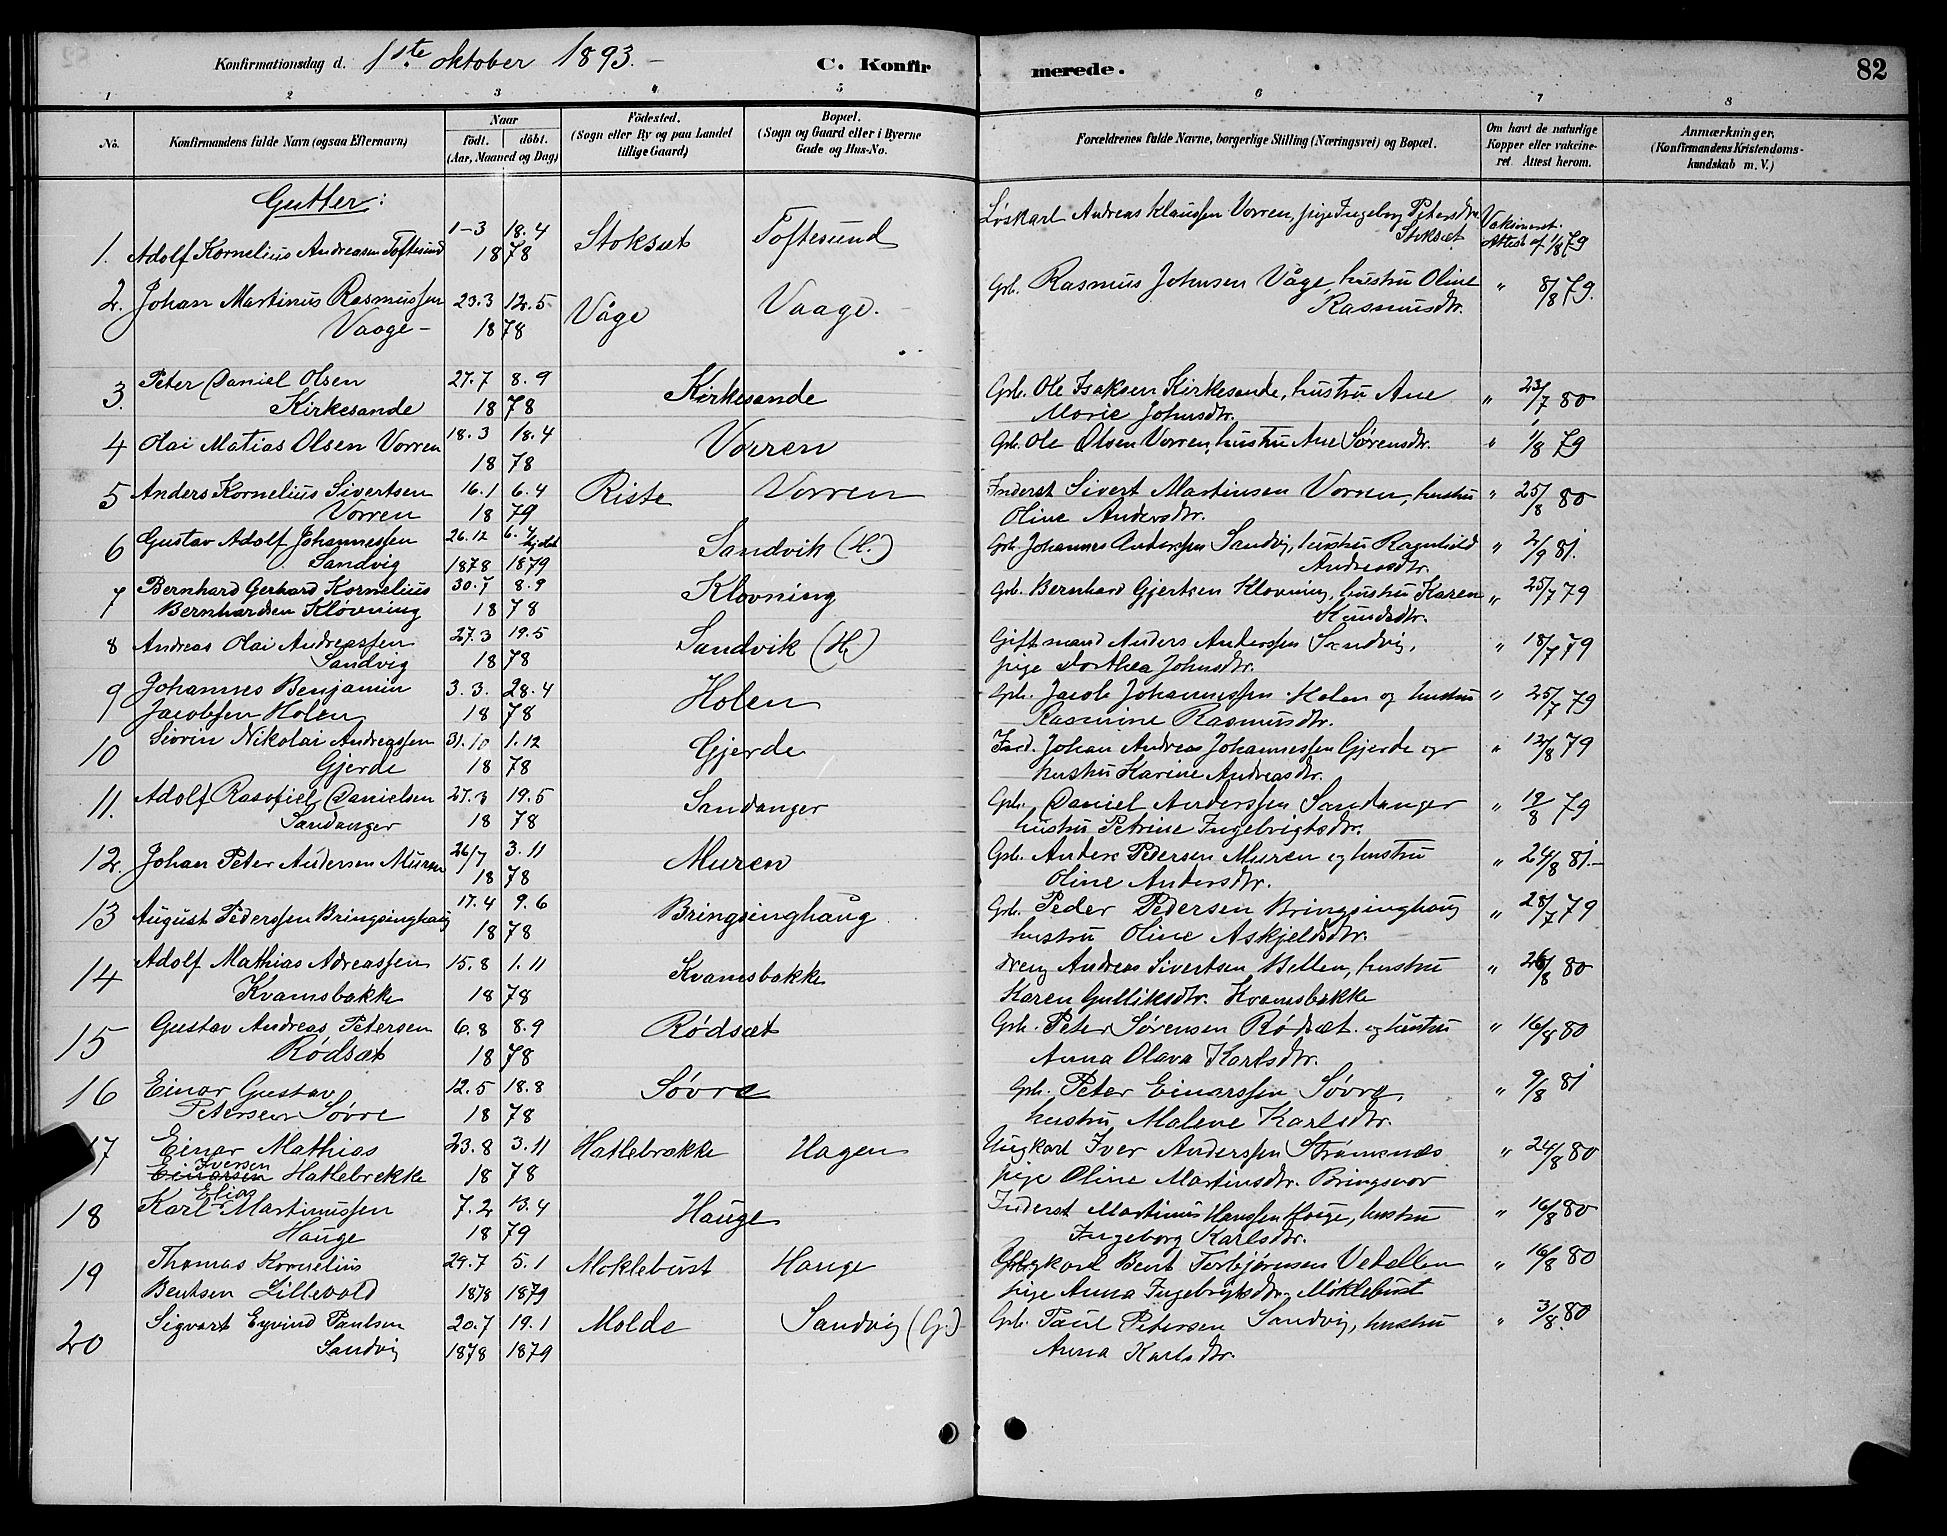 Konfirmationsdag d. 1ste oktober 1893.
C. Konfirmerede.
82
1 2 3 4 5 6 7 8
No.
Konfirmandens fulde Navn (ogsaa Efternavn)
Naar
født. døbt.
(Aar, Maaned og Dag)
Fødested.
(Sogn eller By og paa Landet
tillige Gaard)
Bopæl.
(Sogn og Gaard eller i Byerne
Gade og Hus-No.
Forældrenes fulde Navne, borgerlige Stilling (Næringsvei) og Bopæl.
Om havt de naturlige
Kopper eller vakcine-
ret. Attest herom.
Anmærkninger.
(Konfirmandens Kristendoms-
kundskab m. V.)
Gutter:
1. Adolf Kornelius Andreassen Toftesund 1-3 18.4 1878 Stoksæt Toftesund Løskarl Andreas Klaussen Vorren, pige Ingeborg Petersdtr. Stoksæt Vaksineret. Attest af 1/8 79
2. Johan Martinus Rasmussen
Vaage - 23.3 12.5 1878 Våge Vaage. Grb. Rasmus Johnsen Våge, hustru Oline
Rasmusdtr. " 8/8 79.
3. Peter Daniel Olsen
Kirkesande 27.7 8.9 1878 Kirkesande Grb. Ole Isaksen Kirkesande, hustru Ane
Marie Johnsdtr. " 23/7 80
4 Olai Matias Olsen Vorren 18.3 18.4 1878 Vorren Grb. Ole Olsen Vorren, hustru Ane Sørensdtr. " 1/8 79
5 Anders Kornelius Sivertsen
Vorren 16.1 6.4 1879 Riste Vorren Inderst Sivert Martinsen Vorren, hustru
Oline Andersdtr. " 25/8 80
6 Gustav Adolf Johannessen
Sandvig 26.12 1878 6. 1879 Sandvik (H.) Grb. Johannes Anderssen Sandvig, hustru Ragnhild
Andreasdtr. " 2/9 81.
7 Bernhard Gerhard Kornelius
Bernhardsen Kløvning 30.7 8.9 1878 Klovning Grb. Bernhard Gjertsen Klovning, hustru Karen
Knudsdtr. " 25/7 79
8 Andreas Olai Andreassen
Sandvig 27.3 19.5 1878 Sandvik (H.) Gift mand Anders Anderssen Sandvig,
pige Dorthea Johnsdtr. " 18/7 79
9 Johannes Benjamin
Jacobsen Holen 3.3. 28.4 1878 Holen Grb. Jacob Johannessen Holen og hustru
Rasmine Rasmusdtr. " 25/7 79
10 Siovin Nikolai Andreassen
Gjerde 31.10 1.12 1878 Gjerde Johan Andreas Johannessen Gjerde og
hustru Karine Andreasdtr. " 12/8 79
11. Adolf Rasofiel Danielsen
Sandanger 27.3 19.5 1878 Sandanger Grb. Daniel Anderssen Sandanger
hustru Petrine Ingebrigtsdtr. " 19/8 79
12. Johan Peter Andersen Muren 26/7 3.11 1878 Muren Grb. Anders Pedersen Muren og hustru
Oline Andersdtr. " 24/8 81.-
13 August Pederssen Bringsinghaug 17.4 9.6 1878 Bringsinghaug Grb. Peder Pedersen Bringsinghaug
hustru Oline Askjeldsdtr. " 28/7 79
14 Adolf Mathias Adreassen
Kvamsbakke 15.8 1.11 1878 Kvamsbakke dreng Andreas Sivertsen Hellen, hustru
Karen Gulliksdtr. Kvamsbakke " 26/8 80
15 Gustav Andreas Petersen
Rødsæt 6.8 8.9 1878 Rødsæt Grb. Peter Sørensen Rødsæt og hustru
Anna Olava Karlsdtr. " 16/8 80
16 Einar Gustav
Petersen Søvre 12.5 18.8 1878 Søvre Grb. Peter Einarssen Søvre,
hustru Malene Karlsdtr. " 9/8 81
17 Einar Mathias
Iversen
Einarsen Hatlebrekke 23.8 3.11 1878 Hatlebrække Hagen Ungkarl Iver Anderssen Strømsnes
pige Oline Martinsdtr. Bringsvor " 24/8 80
18 Karl Elias Martinussen
Hauge 7.2 13.4 1879 Hauge Inderst Martinus Hanssen Hauge, hustru
Ingeborg Karlsdtr. " 16/8 80
19 Thomas Kornelius
Bentsen Lillevold 29.7 5.1 1878 1879 Mokleburst Hauge Ungkarl Bent Torbjørnsen Vedellen
pige Anna Ingebrigtsdtr. Mokleburst " 16/8 80
20 Sigvart Eyvind Paulsen
Sandvig 20.7 19.1 1878 1879 Molde Sandvig (G.) Grb. Paul Petersen Sandvig, hustru
Anna Karlsdtr. " 3/8 80